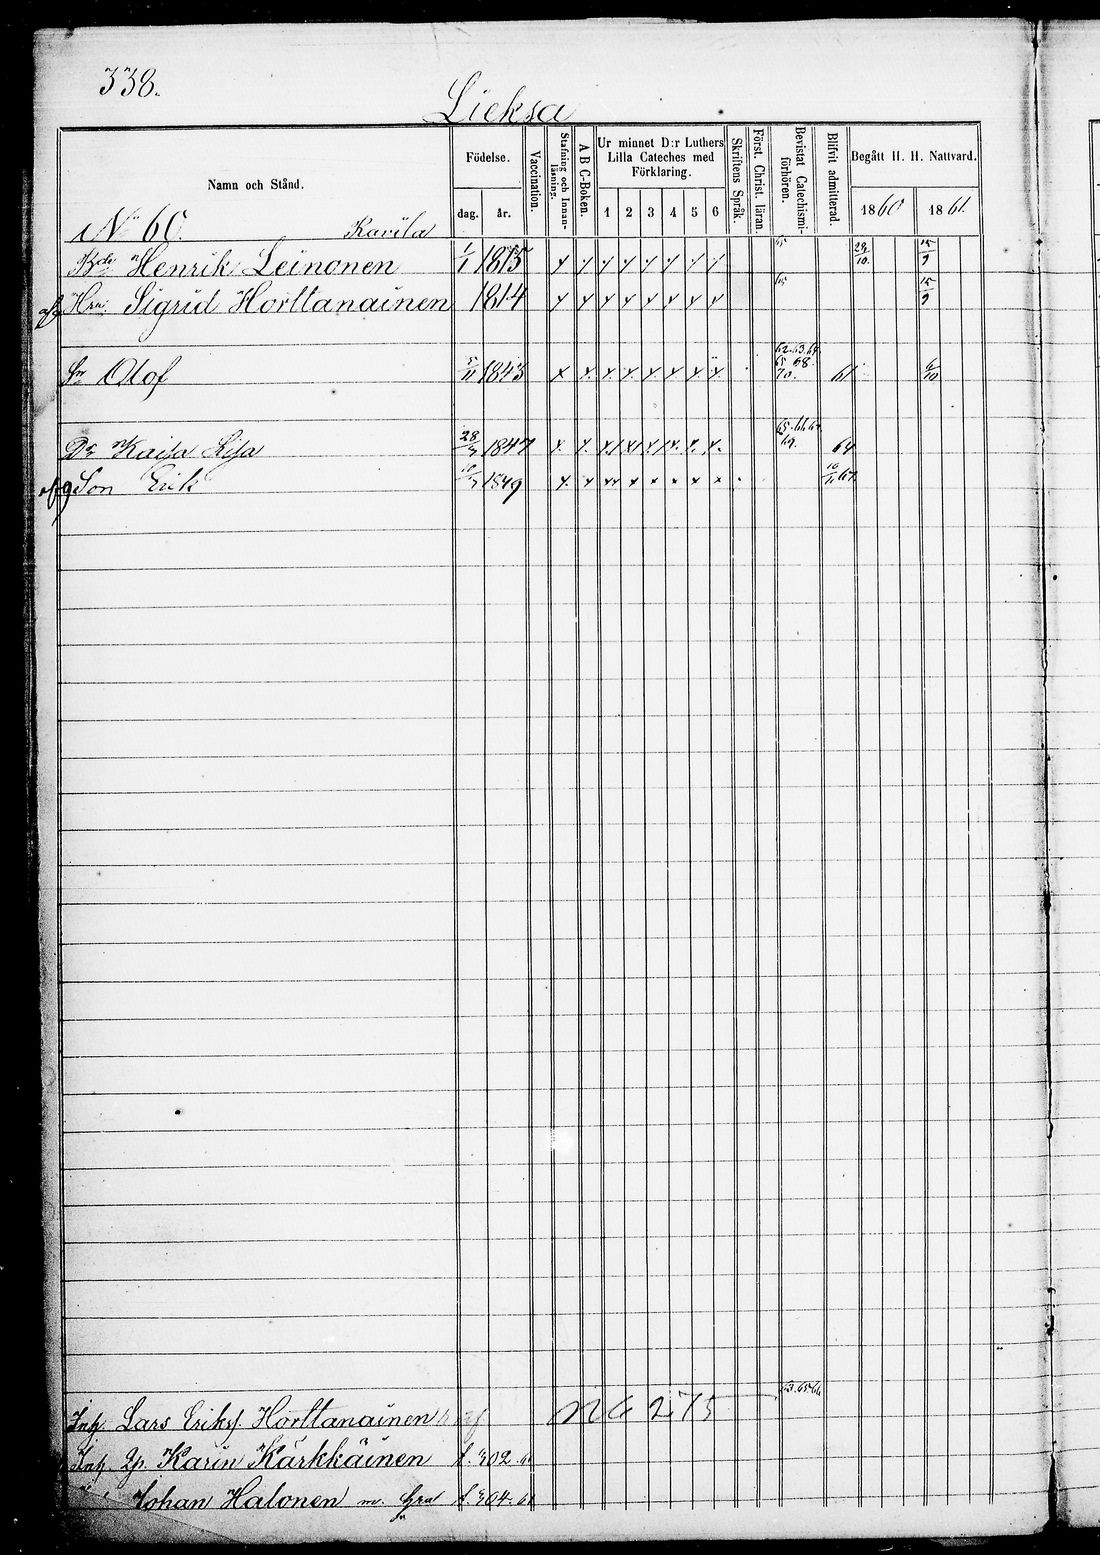 338.
Lieksa
Namn och Stånd.
Födelse.
dag. år.
Vaccination.
Stafning och Innanläsning.
A B C-Boken.
Ur minnet D:r Luthers
Lilla Cateches med
Förklaring.
1 2 3 4 5 6
Skriftens Språk.
Först. Christ. läran.
Bevistat Catechismiförhören.
Blifvit admitterad.
Begått H. H. Nattvard.
1860 1861.
No 60. Kavila
Henrik Leinonen 1/1 1815 65 28/10. 15/9
Hru. Sigrid Horttanainen 1814 65 15/9
Sn Olof 5/11 1843 62.63.64. 65 68. 70. 61 6/10
Dr Kaisa Lisa 28/3 1847 65.66.67. 69. 64
Son Erik 1849 67
63.65.66
Inh. Lars Eriksf. Horttanainen No 275
Inh. Karin Kärkkäinen f. 302.
Johan Halonen m. hru f. 304.